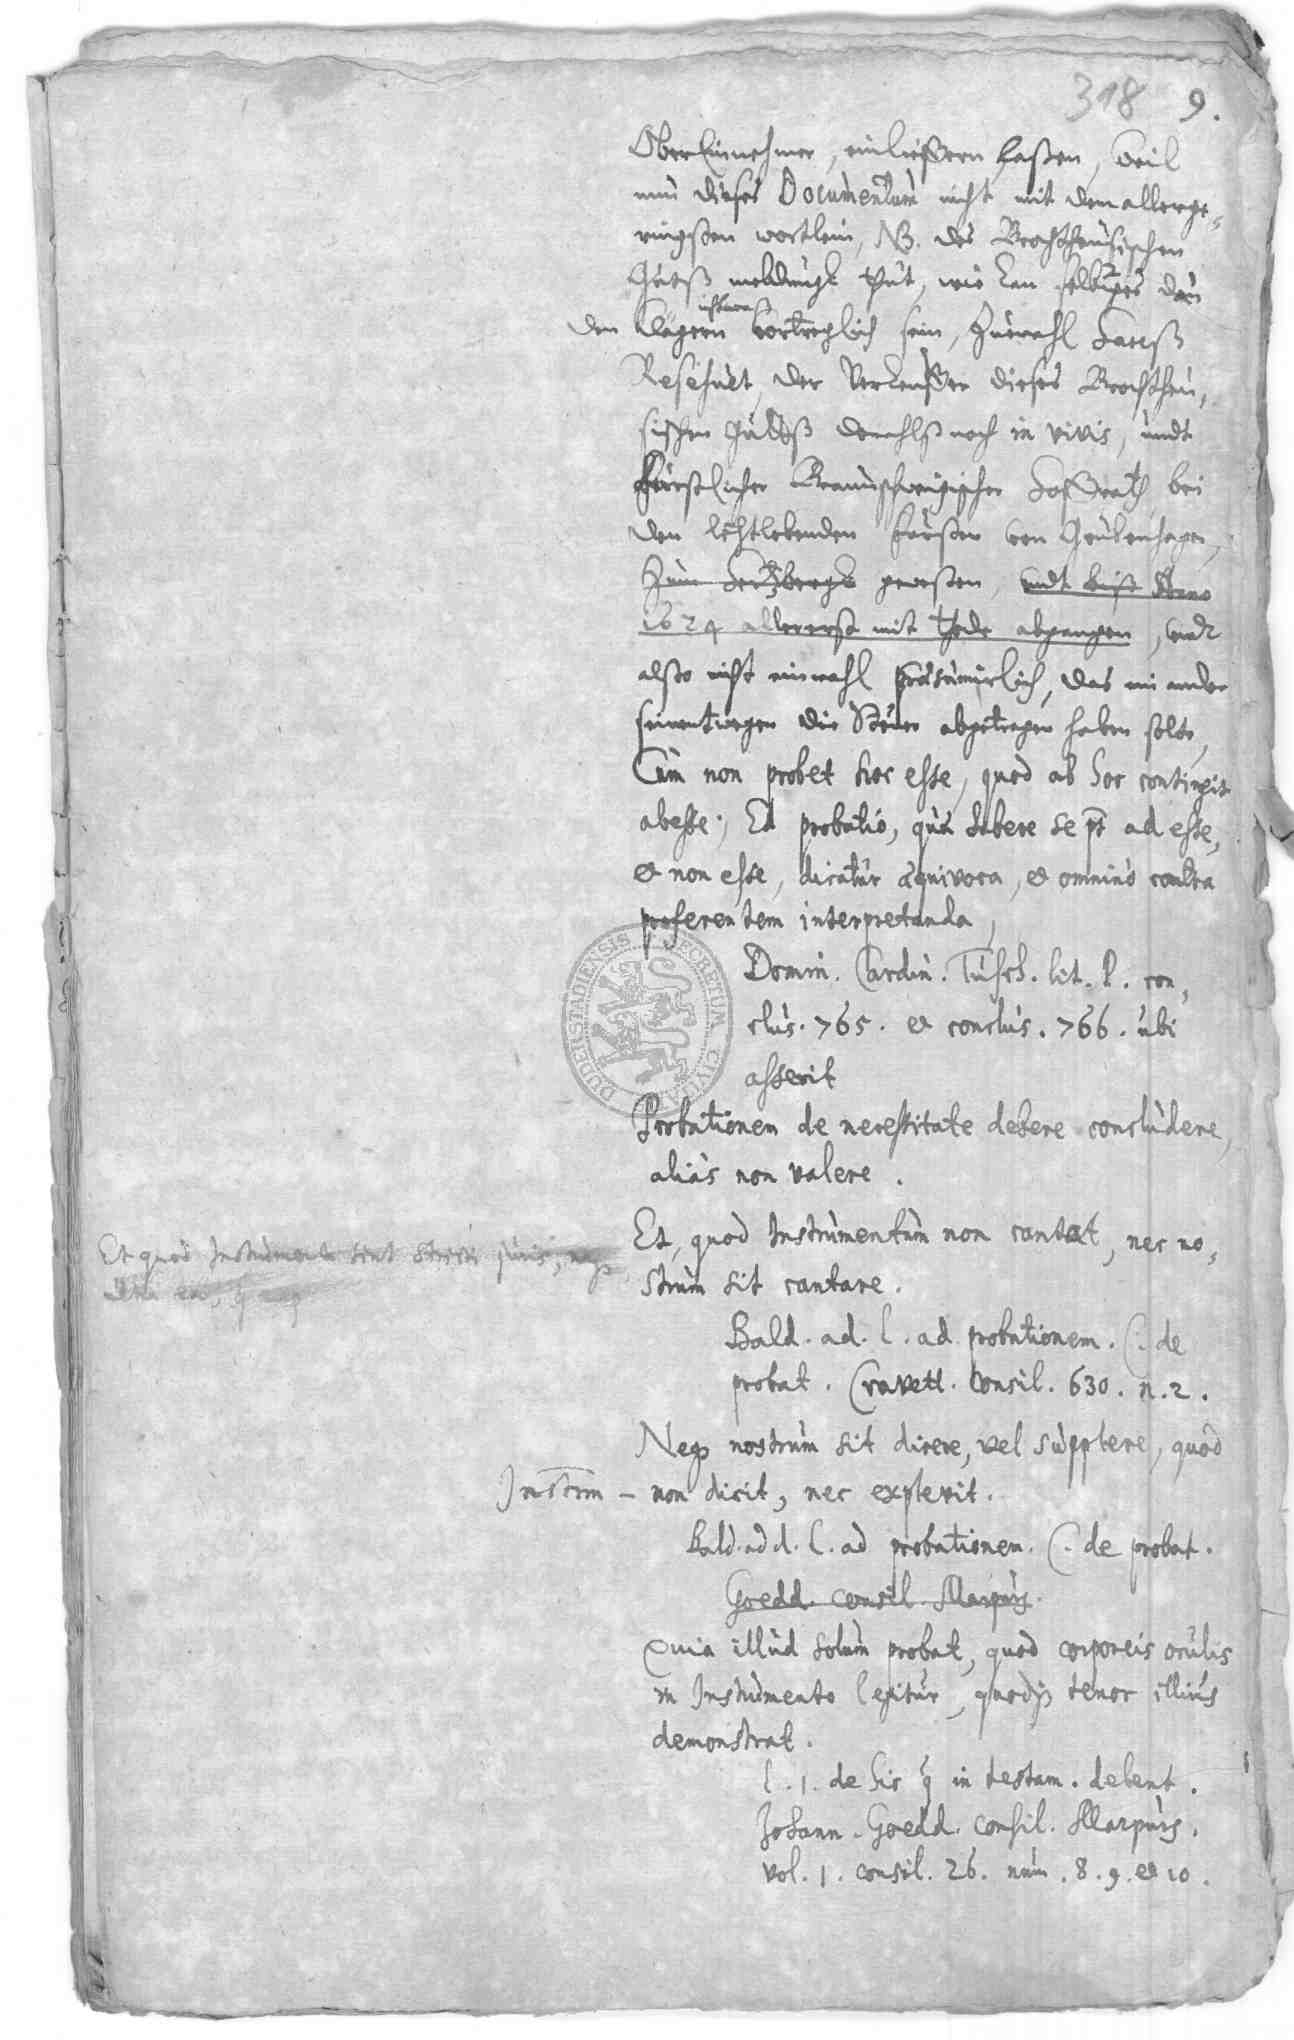 318 9.
OberEinnehmer, einließern laßen, weil
nun dieses Documentum nicht mit dem allerge-
ringsten wortlein, NB. des Brochtheusischen
Guets meldung thut, wie kan selbiges dan
den Klägern ichtwas vortreglich sein, Zumahl
Reschuet, der Verkeuffer dieses Brochtheu-
sischen noch in vivis, undt
Fürstlicher Braunschweigischer Hoffrath, bei
den letztlebenden Fürsten von Grubenhagen,
Zum Hertzbergk gewesen, undt biß Anno
1624 allererst mit thode abgangen, undt
also nicht einmahl præsumirlich, das ein ander
seinentwegen die Steuer abgetragen haben solte,
Cum non probet hoc esse, quod ab hoc contingit
abesse; Et probatio, quæ habere se pt ad esse,
et non esse, dicatur æquivoca, et omnino contra
proferentem interpretanda,
Domin. Cardin. Tusch. lit. P. con-
clus. 765. et conclus. 766. ubi
asserit
Probationem de necessitate debere concludere,
alias non valere.
Et, quod Instrumentum non cantat, nec no-
strum sit cantare.
Et quod Instrumenta sint stricti juris, neq
ultra ea, q
Bald. ad. l. ad probationem. C. de
probat. Cravett. Consil. 630. n. 2.
Neq nostrum sit dicere, vel supplere, quod
Instrum - non dicit, nec explevit.
Bald. ad d. l. ad probationem. C. de probat.
Goedd. consil. Marpurg.
Quia illud solum probat, quod corporeis oculis
in Instrumento legitur, quodq tenor illius
demonstrat.
l. 1. de his q in testam. delent.
Johann. Goedd. Consil. Marpurg.
vol. 1. consil. 26. num. 8. 9. et 10.
SECRETUM CIVITATIS DUDERSTADIENSIS